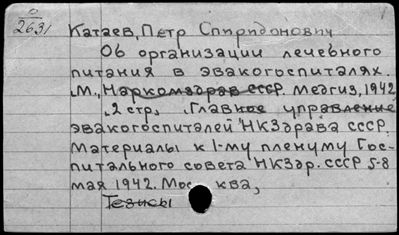 0
2631
Катаев, Петр Спиридонович
Об организации лечебного
питания в эвакогоспиталях.
М., Наркомздрав СССР. Медгиз, 1942
2 стр. Главное управление
эвакогоспиталей НКЗдрава СССР.
Материалы к 1-му пленуму Гос-
питального совета НКЗдр. СССР 5-8
мая 1942. Мос ква,
Тезисы